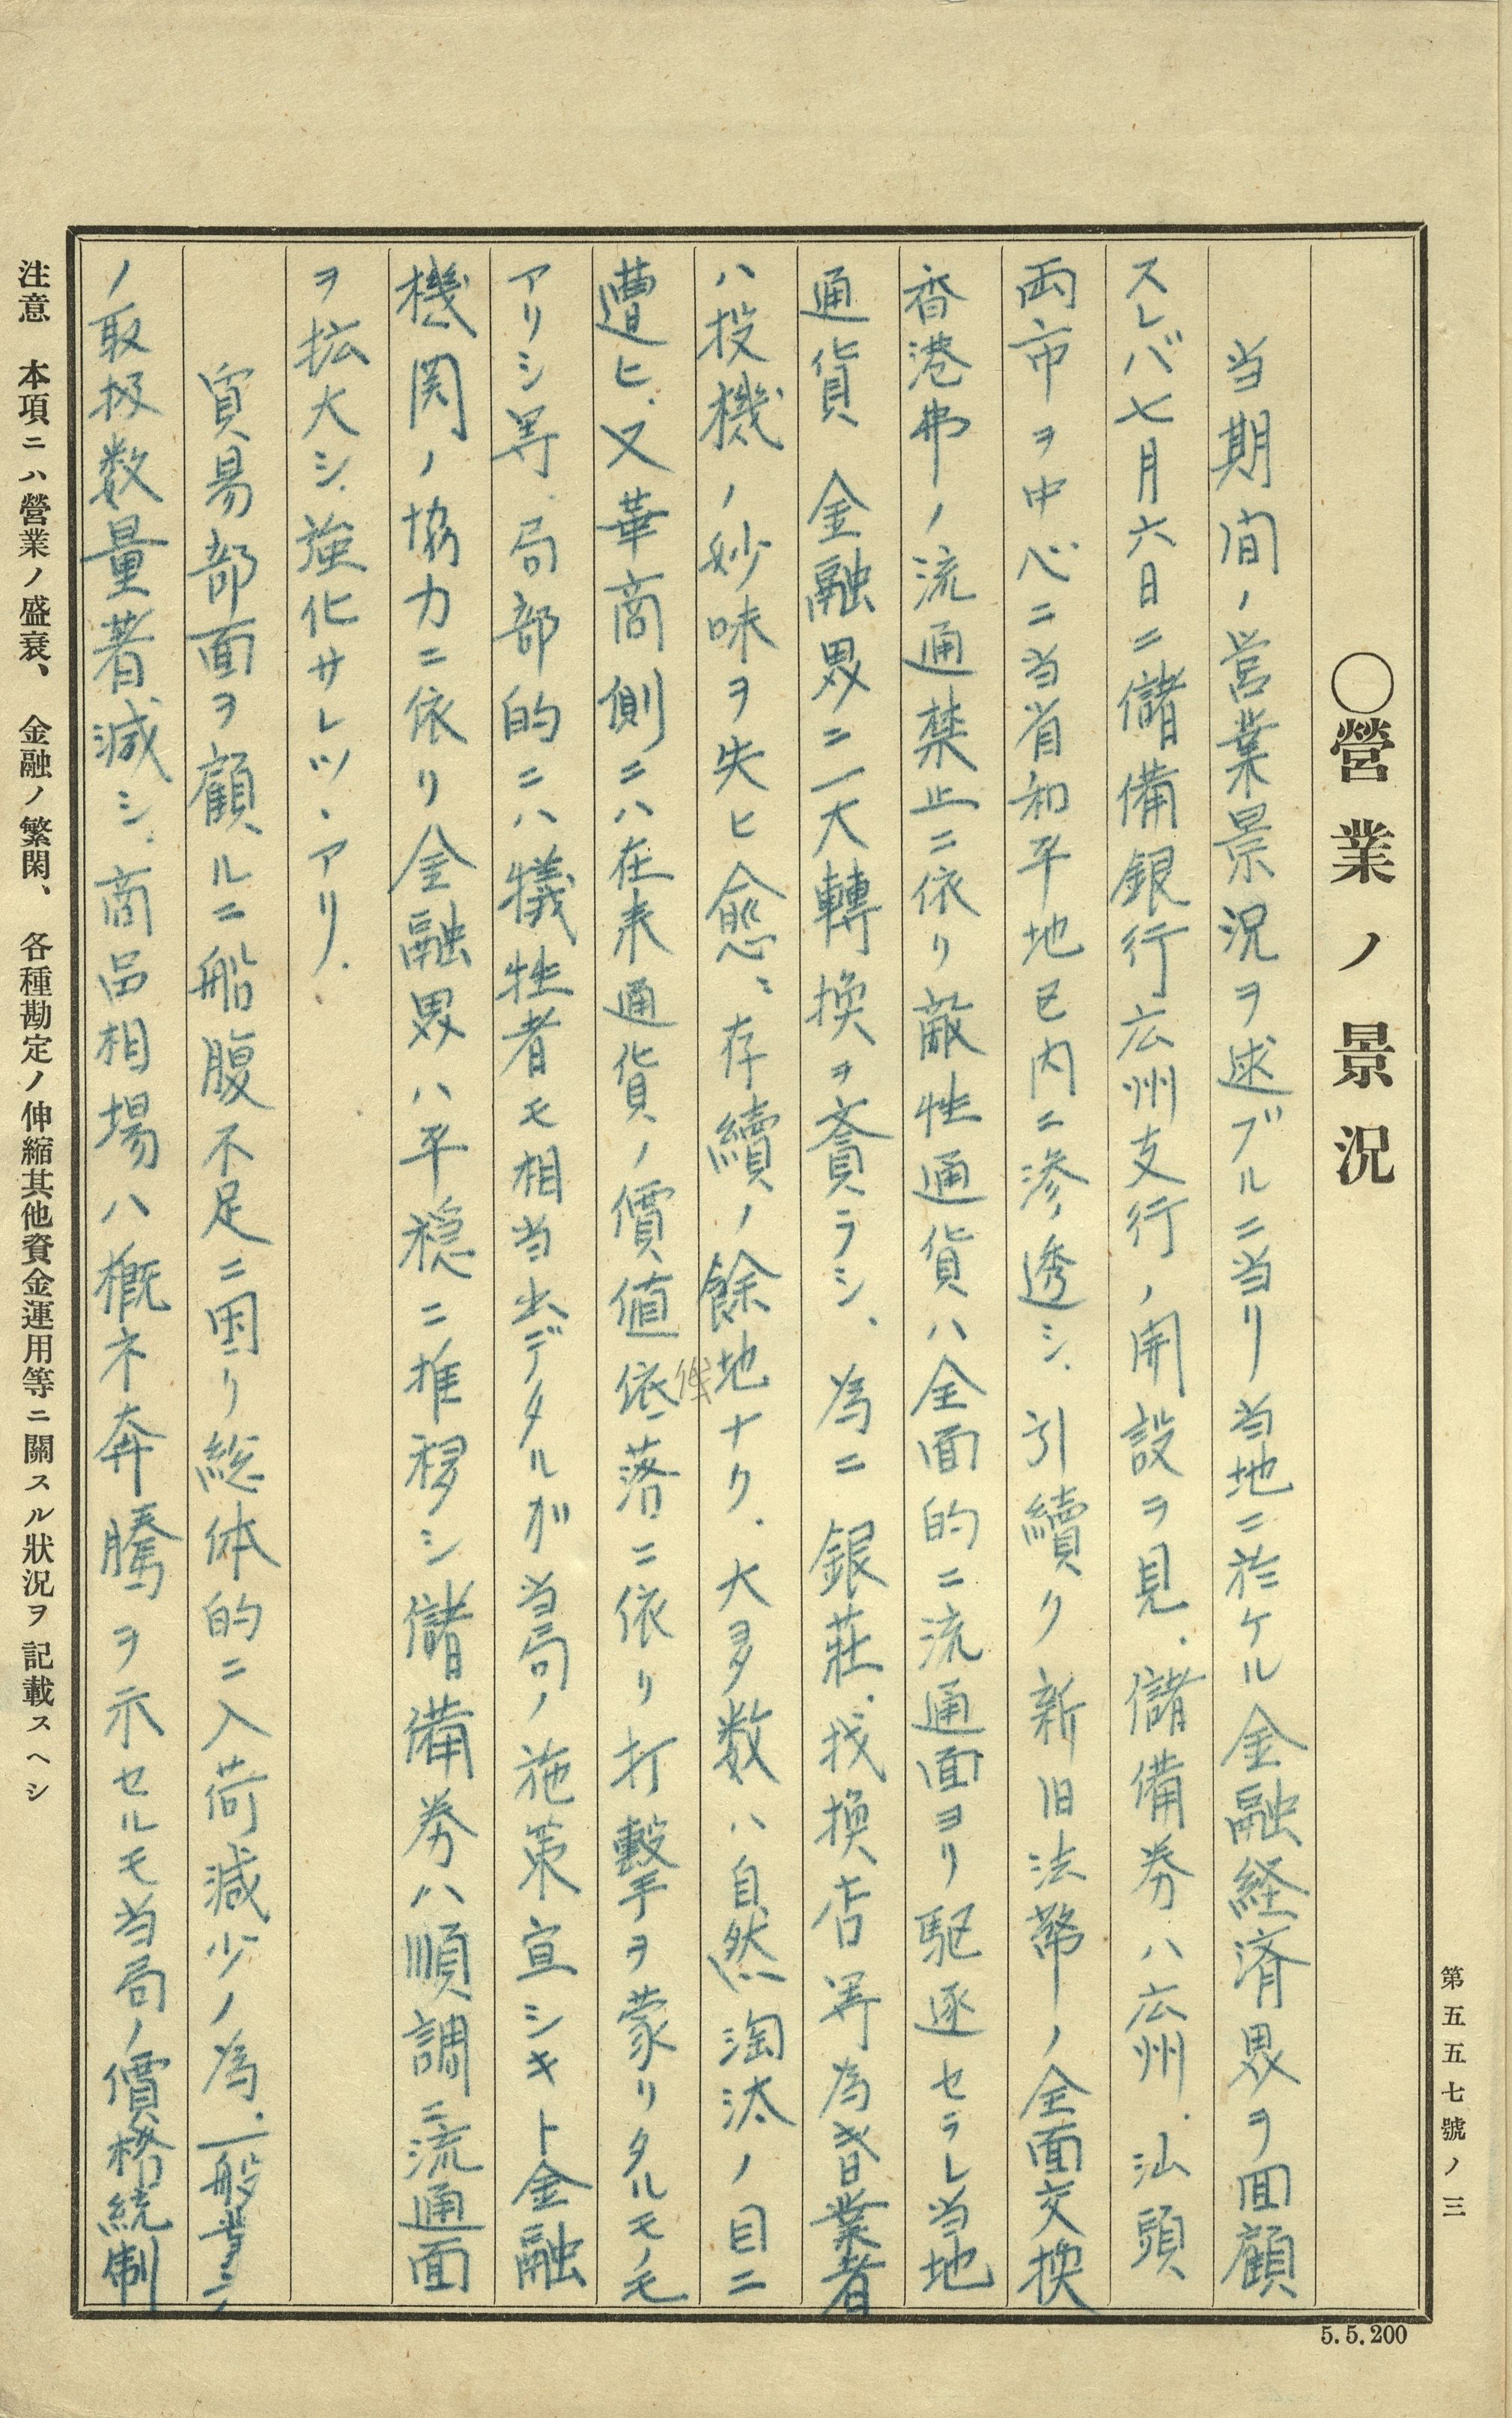 第五五七號ノ三
〇營業ノ景況
当期間ノ営業景況ヲ述ブルニ当リ当地ニ於ケル金融経済界ヲ回顧
スレバ七月六日ニ儲備銀行広州支行ノ開設ヲ見、儲備券ハ広州、汕頭
両市ヲ中心ニ当省和平地区内ニ滲透シ、引續ク新旧法幣ノ全面交換
香港弗ノ流通禁止ニ依リ敵性通貨ハ全面的ニ流通面ヨリ駆逐セラレ当地
通貨金融界ニ一大轉換ヲ齎ラシ、為ニ銀荘、找換店等為替業者
ハ投機ノ妙味ヲ失ヒ愈々存續ノ餘地ナク、大多数ハ自然淘汰ノ目ニ
遭ヒ、又華商側ニハ在来通貨ノ價値低落ニ依リ打撃ヲ蒙リタルモノモ
アリシ等、局部的ニハ犠牲者モ相当出デタルガ当局ノ施策宣シキト金融
機関ノ協力ニ依リ金融界ハ平穏ニ推移シ儲備券ハ順調ニ流通面
ヲ拡大シ、強化サレツヽアリ、
貿易部面ヲ顧ルニ船腹不足ニ困リ総体的ニ入荷減少ノ為、一般業者
ノ取扱数量著減シ、商品相場ハ概ネ奔騰ヲ示セルモ当局ノ價格統制
注意 本項ニハ營業ノ盛衰、金融ノ繁閑、各種勘定ノ伸縮其他資金運用等ニ關スル狀況ヲ記載スヘシ
5.5.200